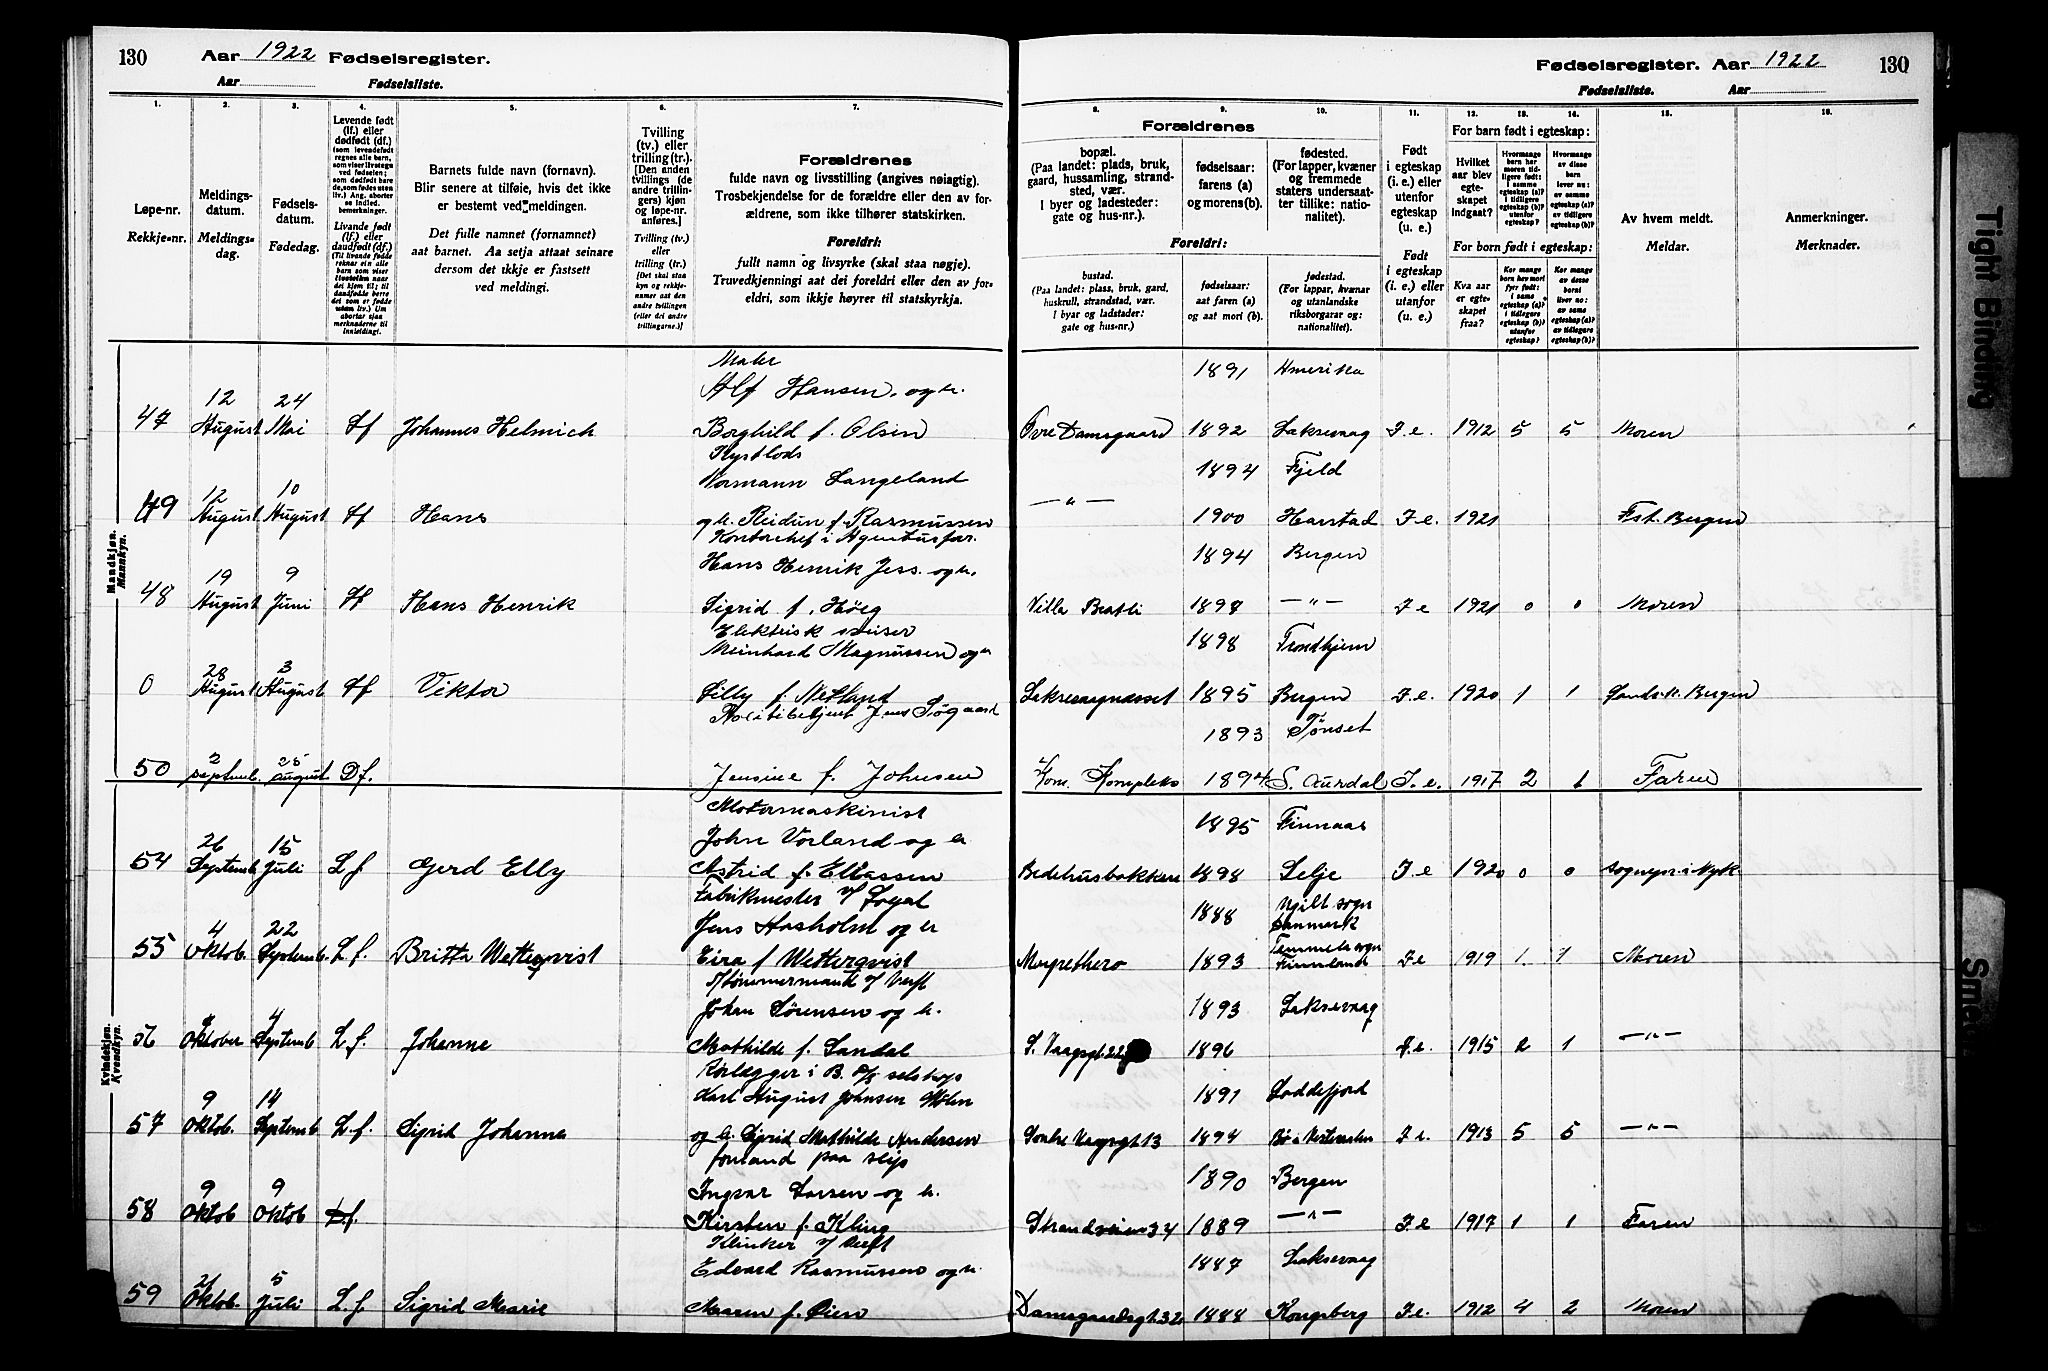 130 Aar 1922 Fødselsregister.
Aar Fødselsliste.
Fødselsregister. Aar 1922 130
Fødselsliste. Aar
1. 2. 3. 4. 5. 6. 7. 8. 9. 10. 11. 12. 13. 14. 15. 16.
Løpe-nr.
Rekkje-nr.
Meldings-
datum.
Meldings-
dag.
Fødsels-
datum.
Fødedag.
Levende født
(lf.) eller
dødfødt (df.)
Livande født
(lf.) eller
daudfødt (df.)
Barnets fulde navn (fornavn).
Blir senere at tilføie, hvis det ikke
er bestemt ved meldingen.
Det fulle namnet (fornamnet)
aat barnet. Aa setja attaat seinare
dersom det ikkje er fastsett
ved meldingi.
Tvilling
(tv.) eller
trilling (tr.).
[Den anden
tvillings (de
andre trillin-
gers) kjøn
og løpe-nr.
anføres.]
Tvilling (tv.)
eller
trilling (tr.)
[Det skal staa
kyn og rekkje-
numer aat den
andre tvillingen
(eller dei andre
trillingarne.)]
Forældrenes
fulde navn og livsstilling (angives nøiagtig).
Trosbekjendelse for de forældre eller den av for-
ældrene, som ikke tilhører statskirken.
Foreldri:
fullt namn og livsyrke (skal staa nøgje).
Truvedkjenningi aat dei foreldri eller den av for-
eldri, som ikkje høyrer til statskyrkja.
Forældrenes
bopæl.
(Paa landet: plads, bruk,
gaard, hussamling, strand-
sted, vær.
I byer og ladesteder:
gate og hus-nr.).
fødselsaar:
farens (a)
og morens (b).
fødested.
(For lapper, kvæner
og fremmede
staters undersaat-
ter tillike: natio-
nalitet).
Foreldri:
bustad.
(Paa landet: plass, bruk, gard,
huskrull, strandstad, vær.
I byer og ladstader:
gate og hus-nr.)
fødselsaar:
aat faren (a)
og aat mori (b).
fødestad.
(For lappar, kvænar
og utanlandske
riksborgarar og:
nationalitet).
Født
i egteskap
(i. e.) eller
utenfor
egteskap
(u. e.)
Født
i egteskap
(i. e.) eller
utanfor
(u. e.)
For barn født i egteskap:
Hvilket
aar blev
egte-
skapet
indgaat?
For born født i egteskap:
Kva aar
er egte-
skapet
fraa?
Av hvem meldt.
Meldar.
Anmerkninger.
Merknader.
Mandkjøn.
Mannkyn.
Maler 1891 Amerika
12 24 Alf Hansen. og h.
47 August Mai Lf Johannes Helmich Borghild f. Olsen Øvre Damsgaard 1892 Laksevaag I.e. 1912 5 5 Moren
Kystlods
Normann Langeland 1894 Fjeld
12 10
49 August August Lf Hans og h. Reidun f. Rasmussen —"— 1900 Harstad I.e. 1921 Fst. Bergen
Kontorchef i
Hans Henrik Jess. og h. 1894 Bergen
19 9
48 August Juni Lf Hans Henrik Sigrid f. Høeg Villa Bratli 1898 —"— I.e 1921 0 0 Moren
Elektrisk sveiser
Meinhard Magnussen og h 1898 Trondhjem
28 3
0 August August Lf Viktor Lilly f. Netland Laksevaagnesset 1895 Bergen I.e. 1920 1 1 Bergen
Politibetjent Jens Søgaard 1893 Tønset
2 25
50 septmb. august Df. Jensine f. Johnsen Kom. Kompleks 1894 S. Aurdal I.e. 1917 2 1 Faren
Kvindekjøn.
Kvendkyn.
Motormaskinist
26 15 John Vorland og h 1895 Finnaas
54 Septemb Juli L f Gerd Elly Astrid f. Eliassen Bedehusbakken 1898 Selje I e 1920 0 0 sognepr. i Nyk.
Fabrikmester
4 22 Jens Aasholm og h 1888 sogn
Danmark
55 Oktob. Septemb. L f. Britta Wetterqvist Eira f Wetterqvist 1893 Temmels sogn
Finnland I e 1919 1. 1 Moren
Tømmermand v/ Verft
4 Johan Sørensen og h. 1893 Laksevaag
56 Oktober Septemb L f. Johanne Mathilde f. Sandal S. Vaagsgt. 22 1896 I.e. 1915 2 1 —"—
Rørlægger i B.
9 14 Karl August Johnsen
57 Oktob. Septemb L.f. Sigrid Johanne 1891 Loddefjord
og h. Sigrid Mathilde Andersen Søndre Vaagsgt. 13 1894 Bø i Vesteraalen I e. 1913 5 5 —"—
formand paa slip
9 9 Ingvar Larsen og h. 1890 Bergen
58 Oktob Oktob Df. Kirsten f. Kling Strandveien 34 1889 —"— I.e 1917 1 1 Faren
Klinker v/ Verft
21 5 Edvard Rasmussen og h. 1887 Laksevaag
59 Oktob. Juli L.f Sigrid Marie Maren f. Øien Damsgaardsgt. 32 1888 Kongsberg I.e. 1912 4 2 Moren
Tight Binding